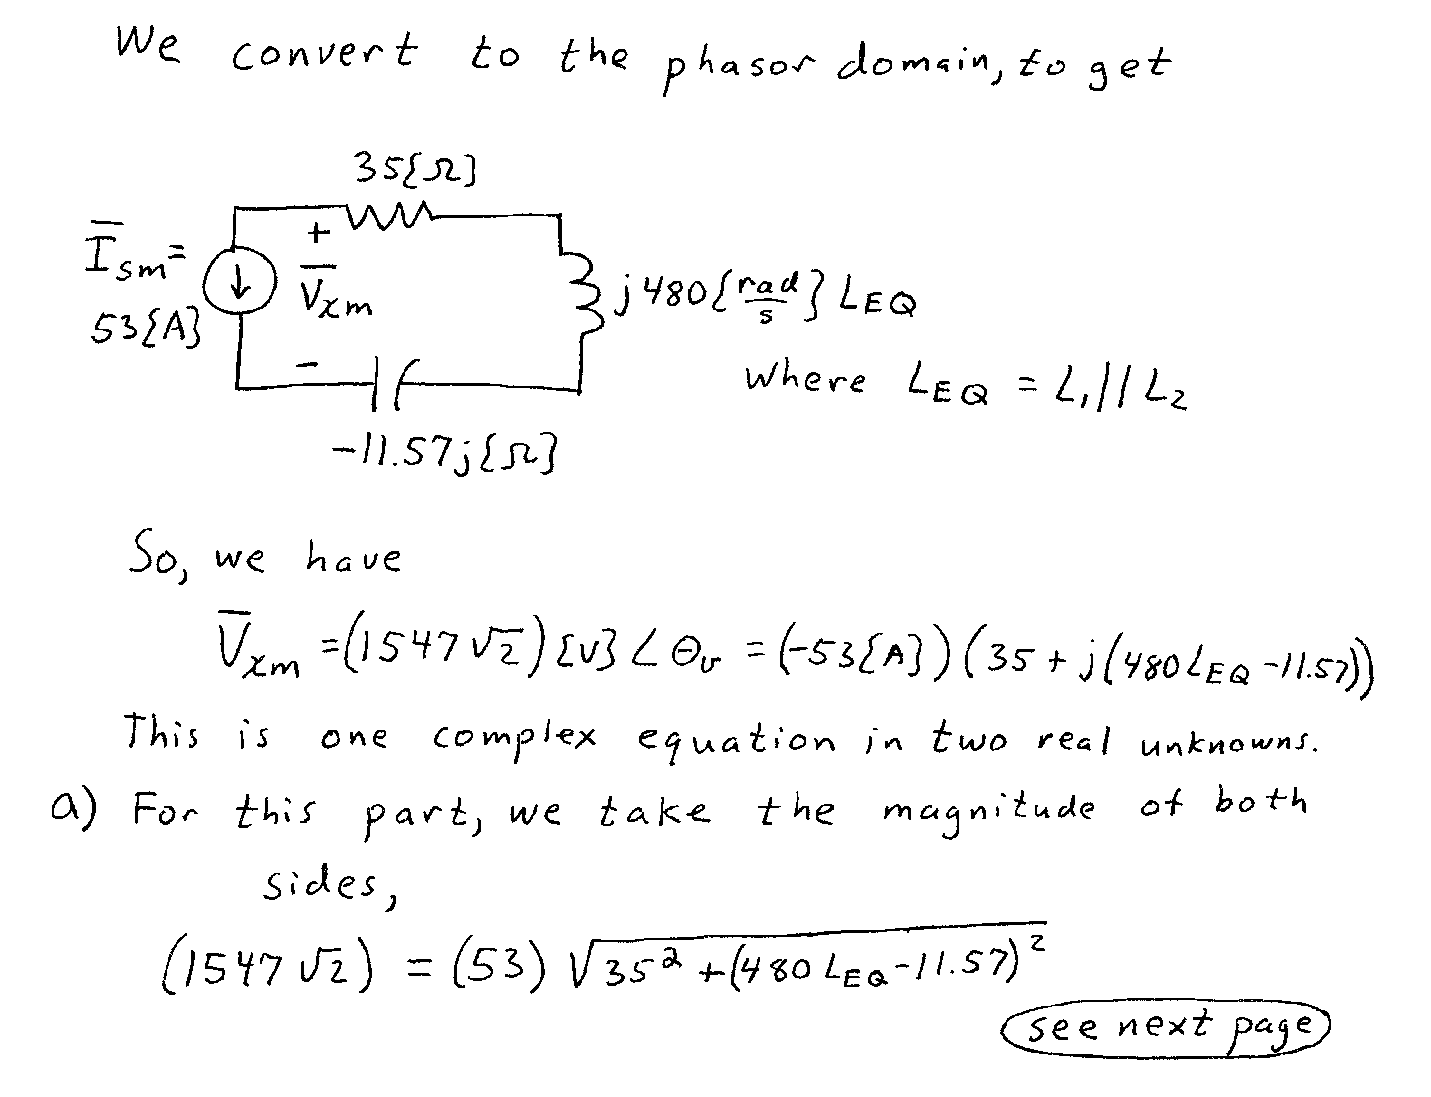 We convert to the phasor domain, to get
35{Ω}
I̅sm =
53{A}
+
V̅xm
-
j480{rad/s} LEQ
where LEQ = L1||L2
-11.57j{Ω}
So, we have
V̅xm = (1547√2){V}∠θv = (-53{A})(35 + j(480LEQ - 11.57))
This is one complex equation in two real unknowns.
a) For this part, we take the magnitude of both
sides,
(1547√2) = (53)√(35² + (480 LEQ - 11.57)²)
see next page